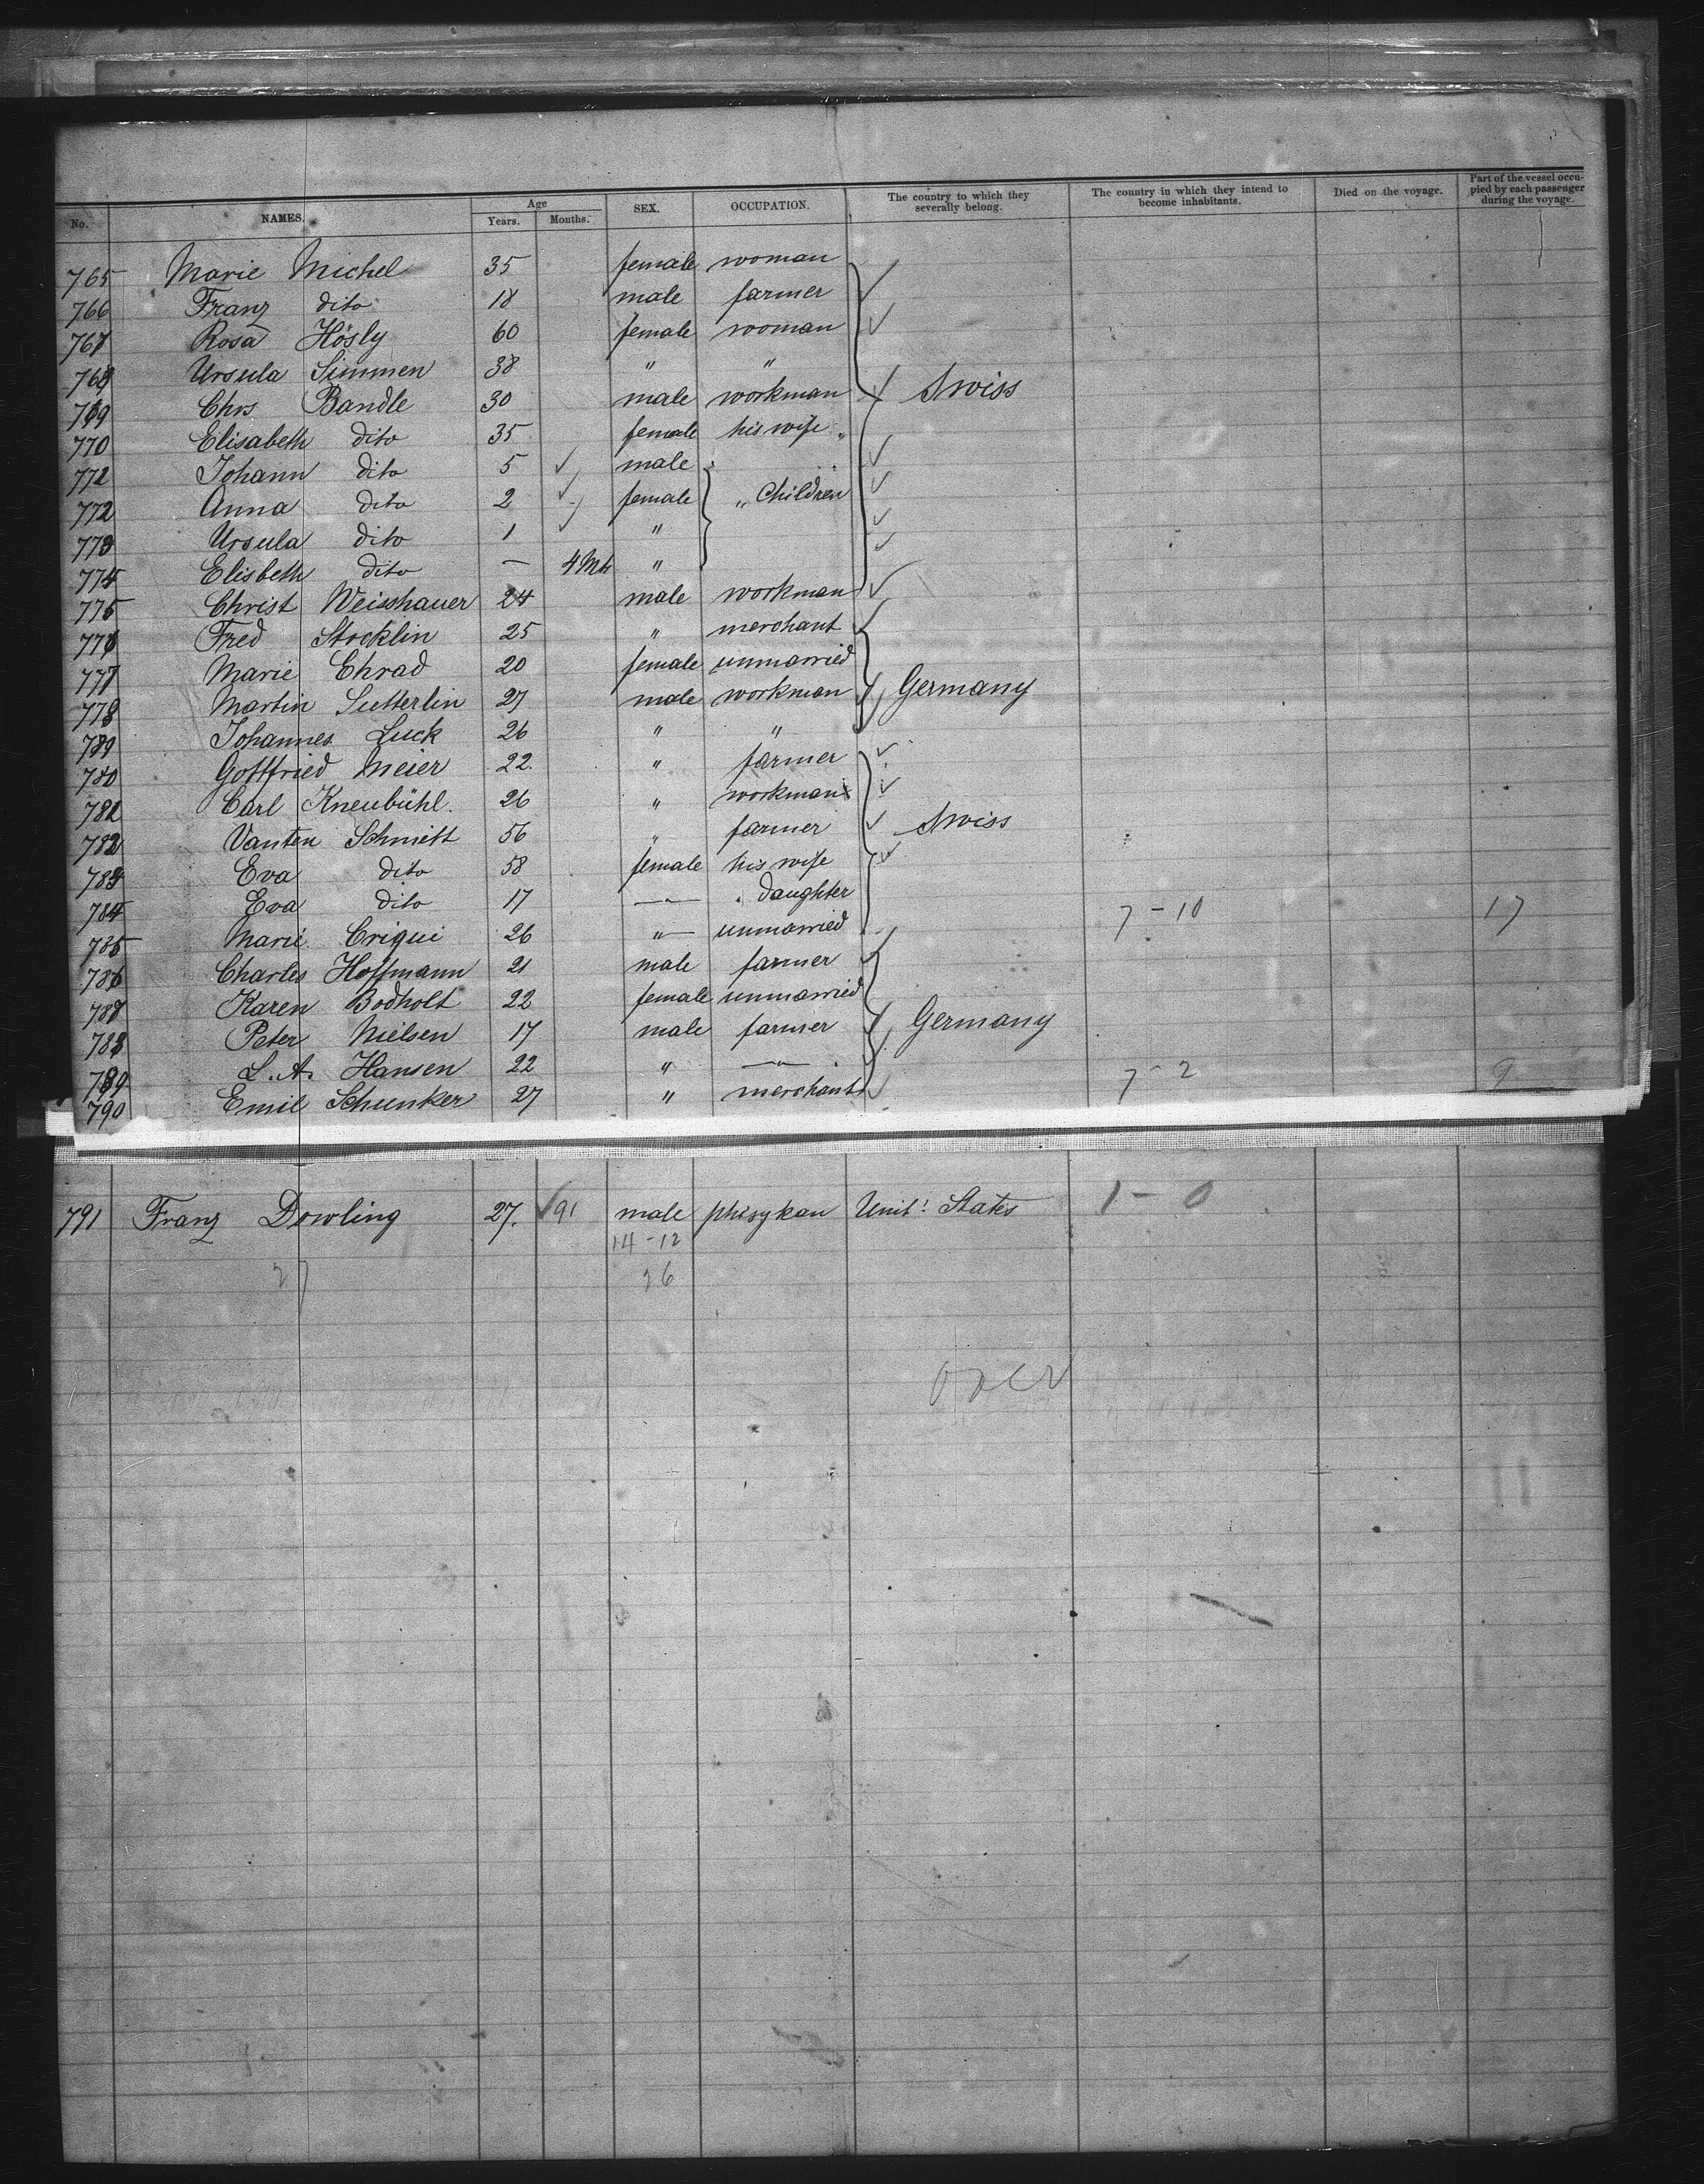 No. NAMES. Age Years. Months. SEX. OCCUPATION. The country to which they severally belong. The country in which they intend to become inhabitants. Died on the voyage. Part of the vessel occupied by each passenger during the voyage.
765 Marie Michel 35 female woman
766 Franz dito 18 male farmer
767 Rosa Hösly 60 female woman
768 Ursula Simmen 38 " "
769 Chrs Bandle 30 male workman Swiss
770 Elisabeth dito 35 female his wife
772 Johann dito 5 male
772 Anna dito 2 female " Children
773 Ursula dito 1 "
774 Elisbeth dito — 4 Mt "
775 Christ Weisshauer 24 male workman
776 Fred Stocklin 25 " merchant
777 Marie Ehrad 20 female unmarried
778 Martin Sutterlin 27 male workman Germany
779 Johannes Luck 26 " "
780 Gottfried Meier 22. " farmer
782 Carl Kneubühl. 26 " workman
782 Vanten Schmitt 56 " farmer Swiss
783 Eva dito 58 female his wife
784 Eva dito 17 —"— " daughter 7 - 10 17
785 Marie Criqui 26 "— unmarried
786 Charles Hoffmann 21 male farmer
787 Karen Bodholt 22 female unmarried
788 Peter Nielsen 17 male farmer Germany
789 L. A. Hansen 22 " —"—
790 Emil Schunker 27 " merchant 7 - 2 9
791 Franz Dowling 27. 91 male phisykan Unit: States 1 - 0
14 - 12
27 26
over
11